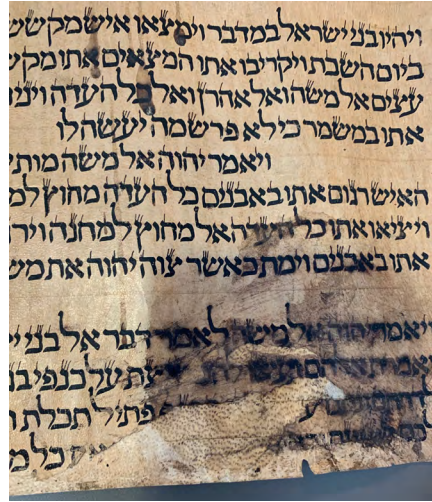 ויהיו בני ישראל במדבר וימצאו איש מקשש
ביום השבת ויקריבו אתו המצאים אתו מקש
עצים אל משה ואל אהרן ואל כל העדה ויניח
אתו במשמר כי לא פרש מה יעשה לו
ויאמר יהוה אל משה מות
האיש רגום אתו באבנים כל העדה מחוץ למ
ויציאו אתו כל העדה אל מחוץ למחנה וירג
אתו באבנים וימת כאשר צוה יהוה את מש
ויאמר יהוה אל משה לאמר דבר אל בני י
ואמרת אלהם ועשו להם ציצת על כנפי בג
לדרתם פתיל תכלת ו
לכם כל מ